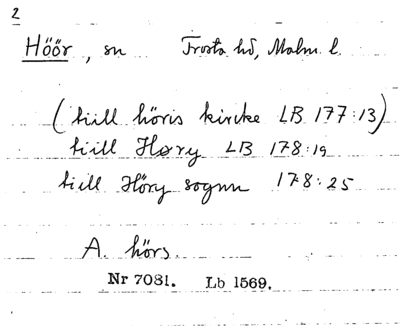 2
Höör, sn Frosta hd, Malm. l.
(tiill höris kircke LB 177:13)
tiill Høry LB 178:19
tiill Höry sognn 178:25
A. hörs.
Nr 7081. Lb 1569.